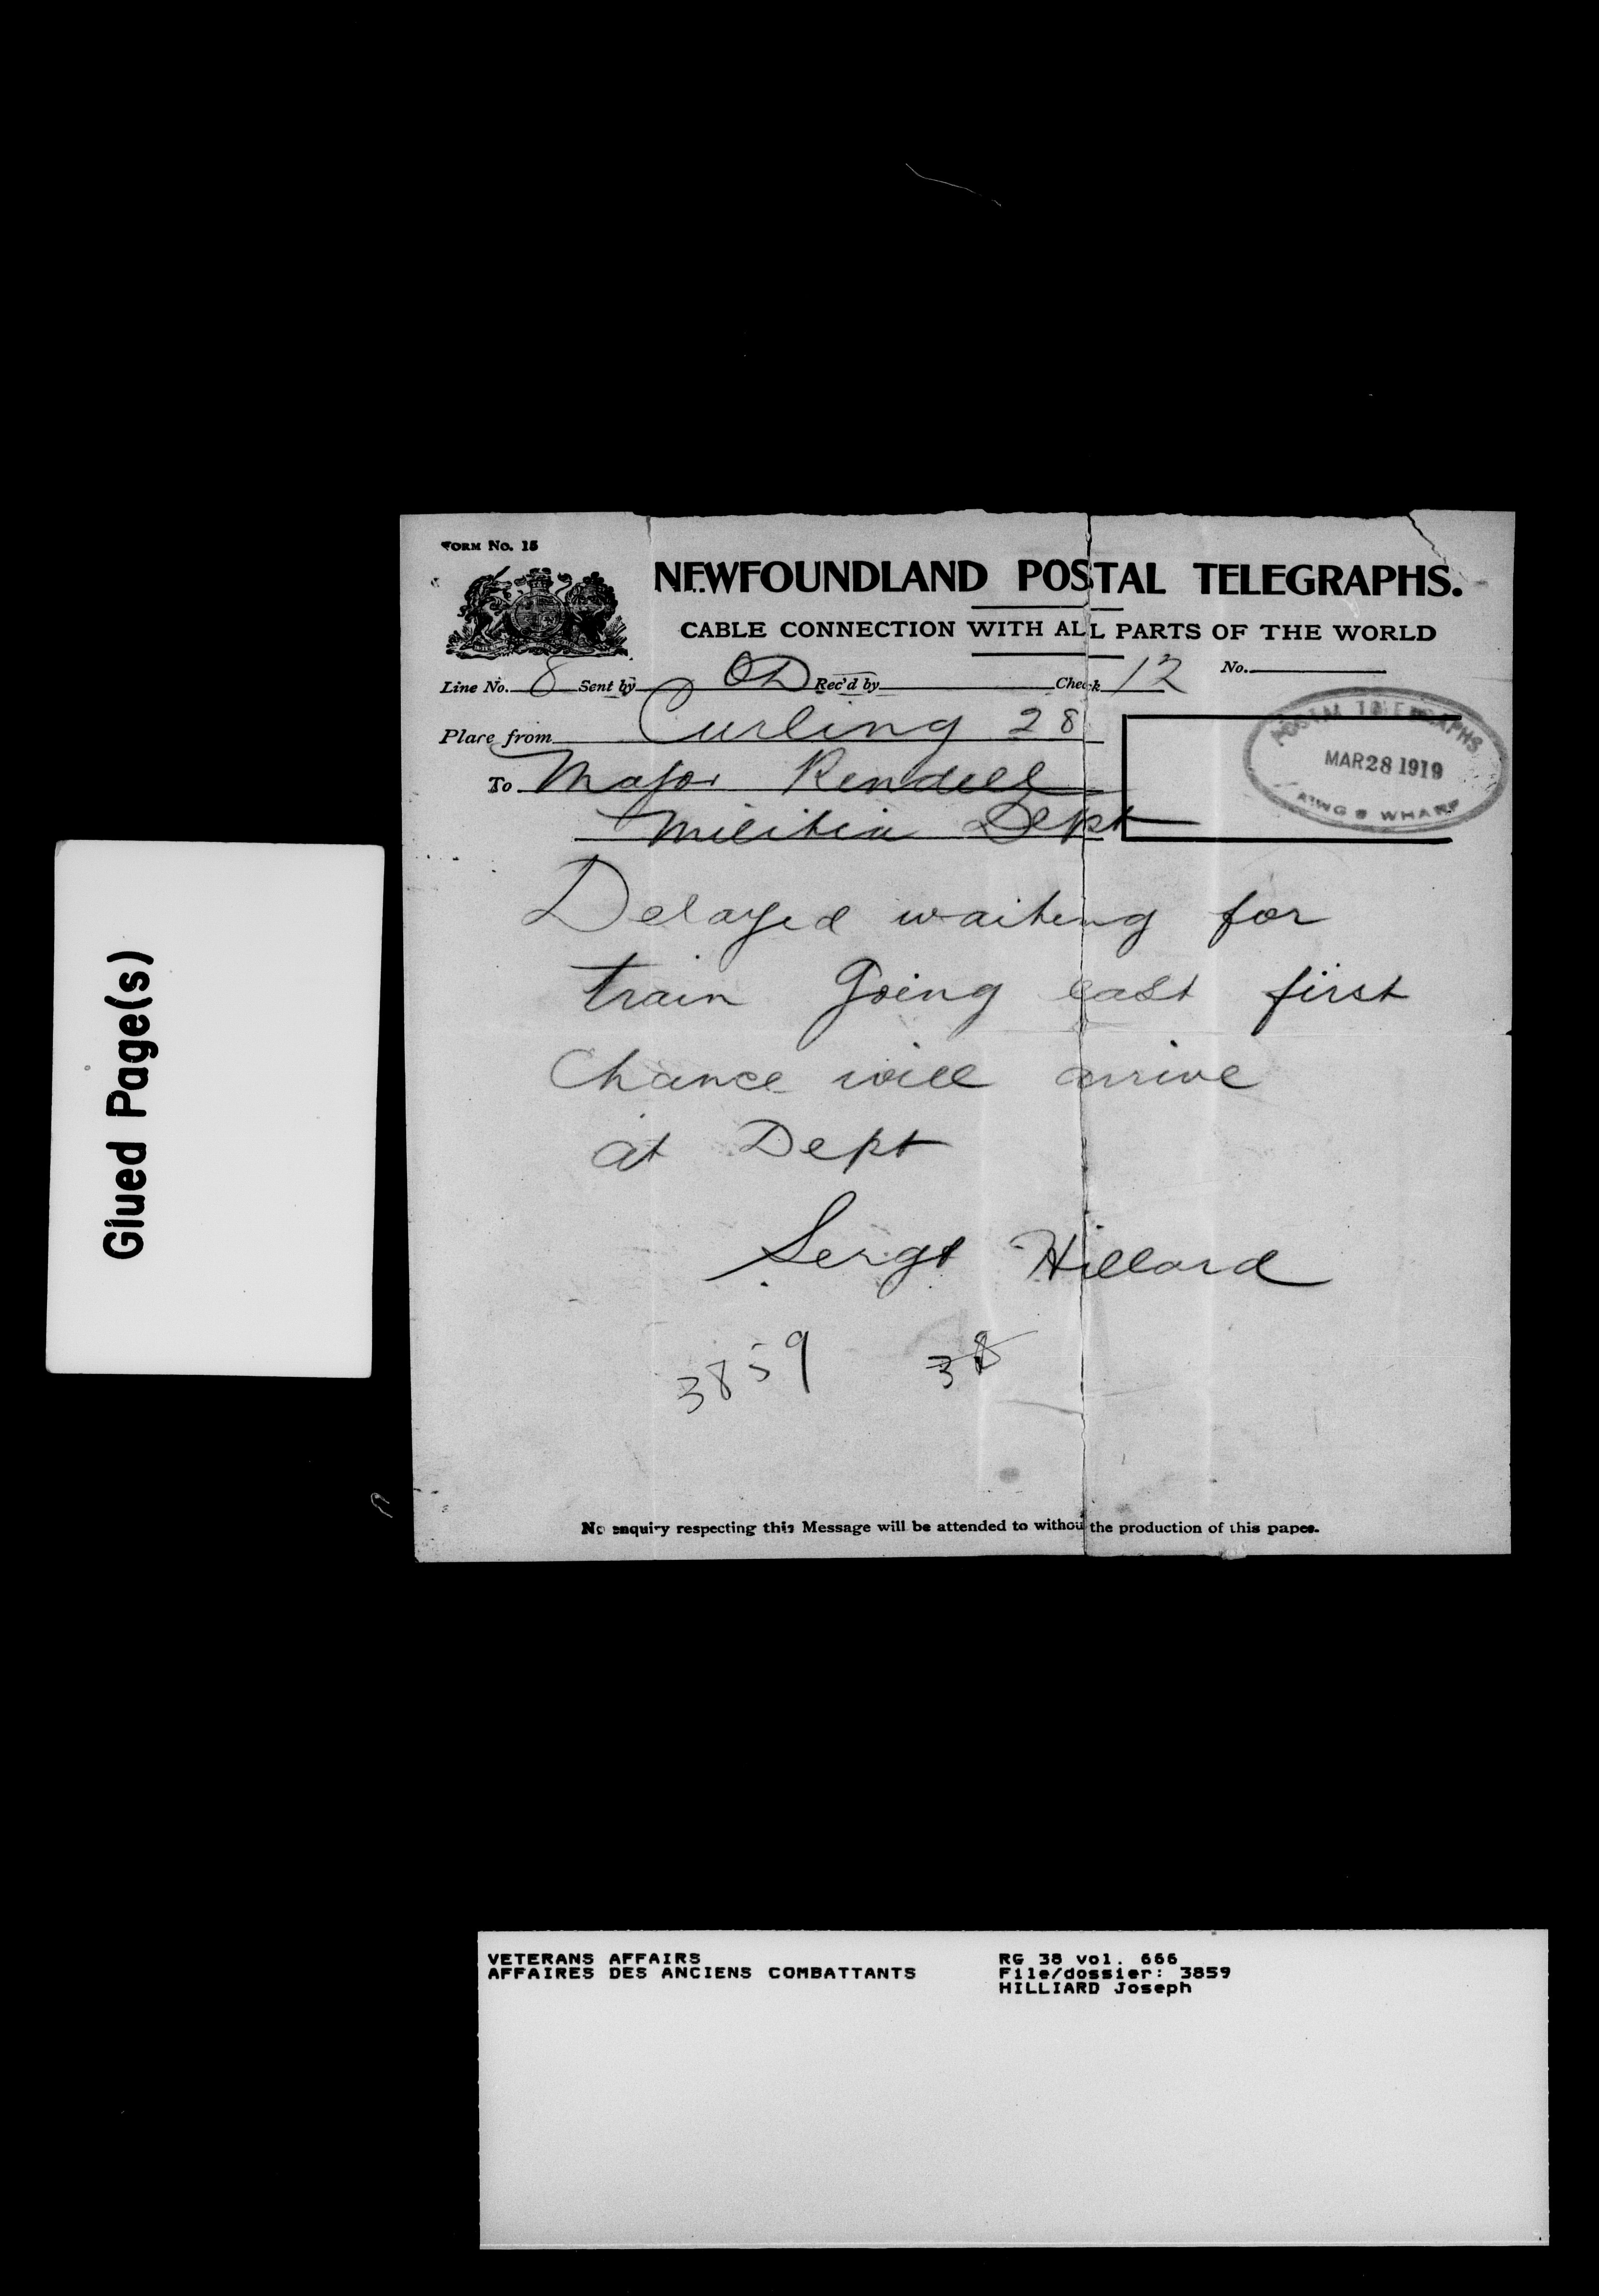 Glued Page(s)
FORM No. 15
NEWFOUNDLAND POSTAL TELEGRAPHS.
CABLE CONNECTION WITH ALL PARTS OF THE WORLD
Line No. 8 Sent by OD Rec'd by Check 12 No.
Place from Curling 28
POSTAL TELEGRAPHS
MAR 28 1919
KING'S WHARF
To Major Rendell
Militia Dept
Delayed waiting for
train Going east first
Chance will arrive
at Dept
Sergt Hillard
3859 38
No enquiry respecting this Message will be attended to without the production of this paper.
VETERANS AFFAIRS RG 38 vol. 666
AFFAIRES DES ANCIENS COMBATTANTS File/dossier: 3859
HILLIARD Joseph